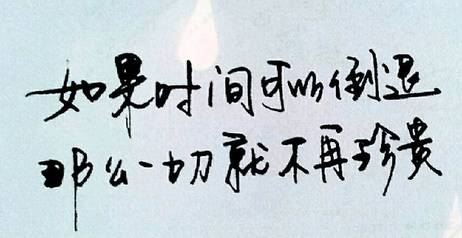 如果时间可以倒退
那么一切就不再珍贵